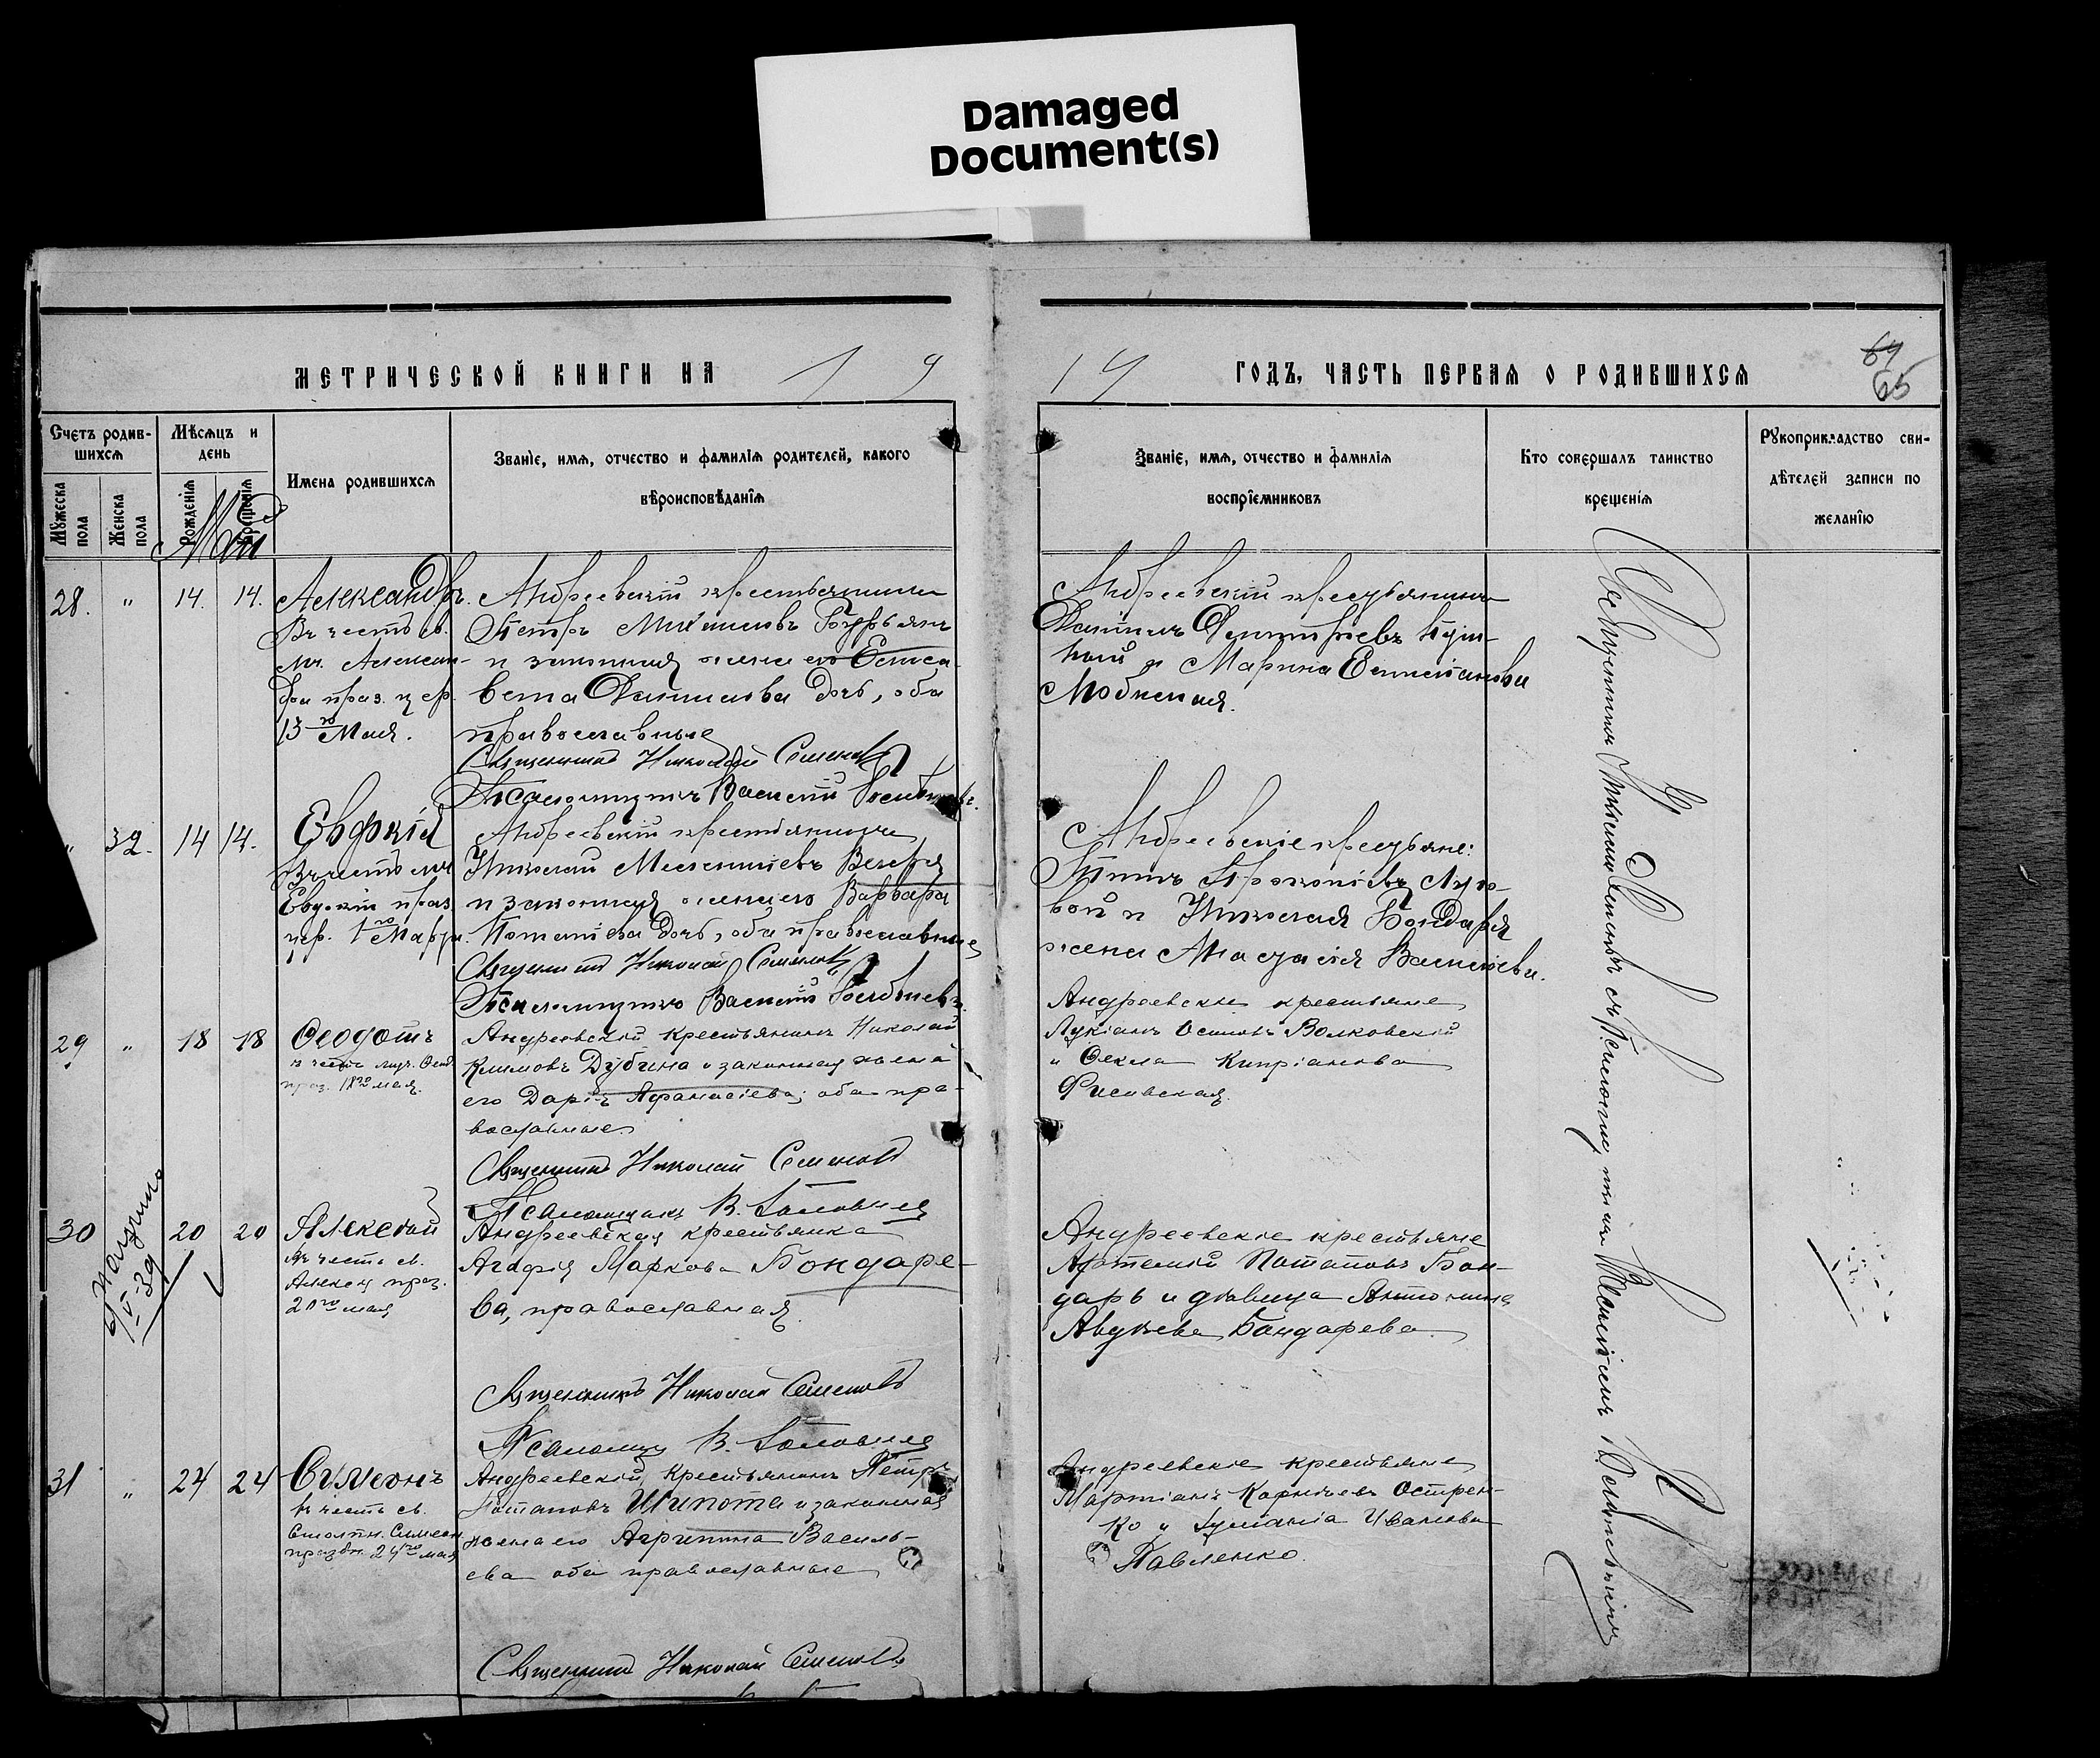 Damaged
Document(s)
МЕТРИЧЕСКОЙ КНИГИ НА 19
14 ГОДЪ, ЧАСТЬ ПЕРВАЯ О РОДИВШИХСЯ
64
65
Счетъ родив-
шихся
Мужеска
пола
Женска
пола
Мѣсяцъ и
день
Рожденія
Крещенія
Имена родившихся
Званіе, имя, отчество и фамилія родителей, какого
вѣроисповѣданія
Званіе, имя, отчество и фамилія
воспріемниковъ
Кто совершалъ таинство
крещенія
Рукоприкладство сви-
дѣтелей записи по
желанію
Май
28. " 14. 14.
Александръ.
Въ честь св.
мч. Алексан-
дра праз. цер.
13го Мая.
Андреевскій крестьянинъ
Петръ Буръянъ
и законная жена его Елиса-
вета Данилова дочь, оба
православные
Священникъ Николай Семеновъ
Псаломщикъ Василій
Андреевскій крестьянинъ
Даніилъ Димитріевъ
и Марина
" 32. 14 14.
Евдокія
Въ честь мч.
Евдокіи праз.
цер. 1го Марта.
Андреевскій крестьянинъ
Николай
и законная жена его Варвара
Потапіева дочь, оба православные
Священникъ Николай Семеновъ
Псаломщикъ Василій
Андреевскіе крестьяне:
Титъ Прокопіевъ
и Николая Бондаря
жена Анастасія Васильева.
29 " 18 18
Ѳеодотъ
въ честь муч. Ѳеод.
праз. 18го мая.
Андреевскій крестьянинъ Николай
Климовъ Дубина и законная жена
его Дарія Аѳанасіева; оба пра-
вославные
Священникъ Николай Семеновъ
Псаломщикъ В.
Андреевскіе крестьяне
Лукіанъ Осиповъ Волковскій
и Ѳекла Кипріанова
30 20 20
V-39
Алексѣй
въ честь св.
Алексѣя праз.
20го мая
Андреевская крестьянка
Агафія Маркова Бондаре-
ва, православная.
Священникъ Николай Семеновъ
Псаломщ. В.
Андреевскіе крестьяне
Артемій Потаповъ Бон-
дарь и дѣвица Антонина
Авдѣева Бондарева.
31 " 24 24
Симеонъ
въ честь св.
Столпн. Симеон.
праздн. 24го мая
Андреевскій крестьянинъ Петръ
Потаповъ Шипота и законная
жена его Агрипина Василь-
ева оба православные
Священникъ Николай Семеновъ
Андреевскіе крестьяне
Мартіанъ Корніевъ Остры-
ко и Іуліанія Иванова
Павленко.
Священникъ Николай Семеновъ съ псаломщикомъ Василіемъ